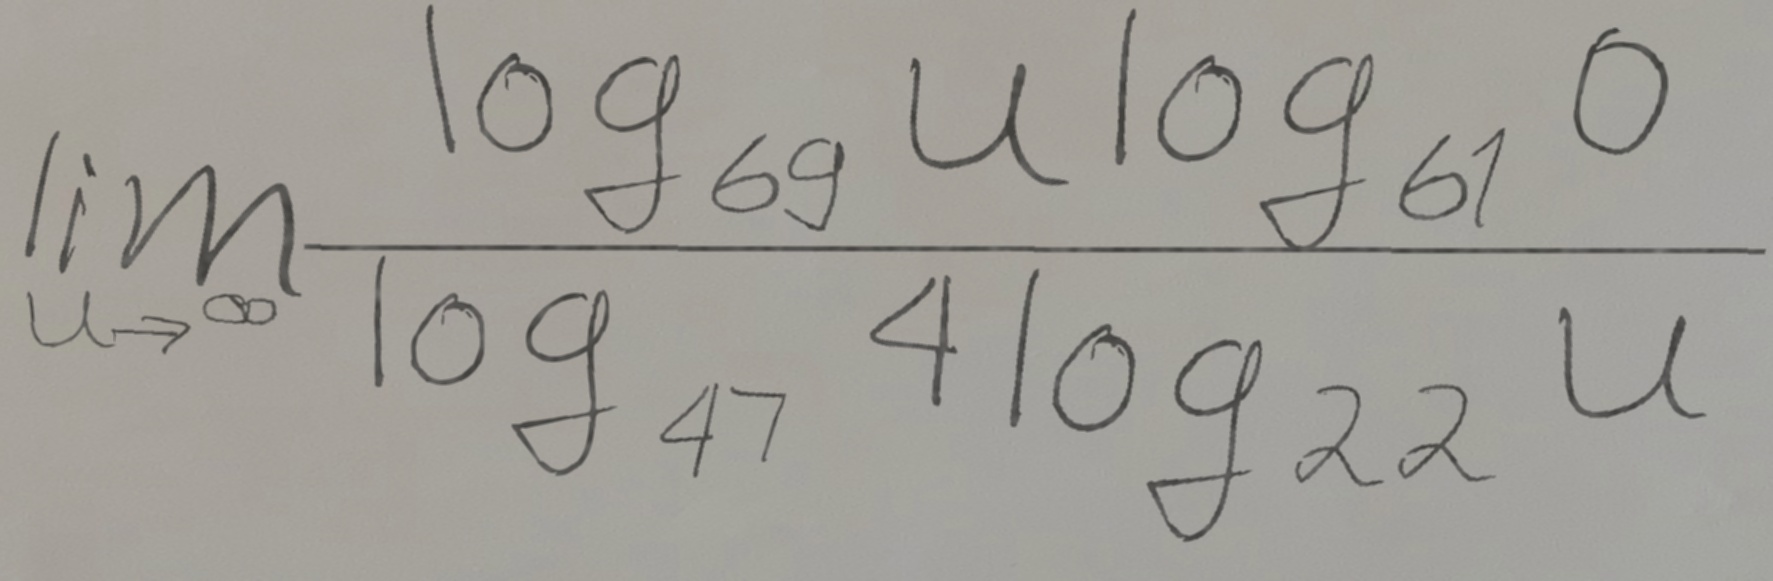 \lim_{u \to \infty} \frac{\log_{69} u \log_{61} 0}{\log_{47} 4 \log_{22} u}